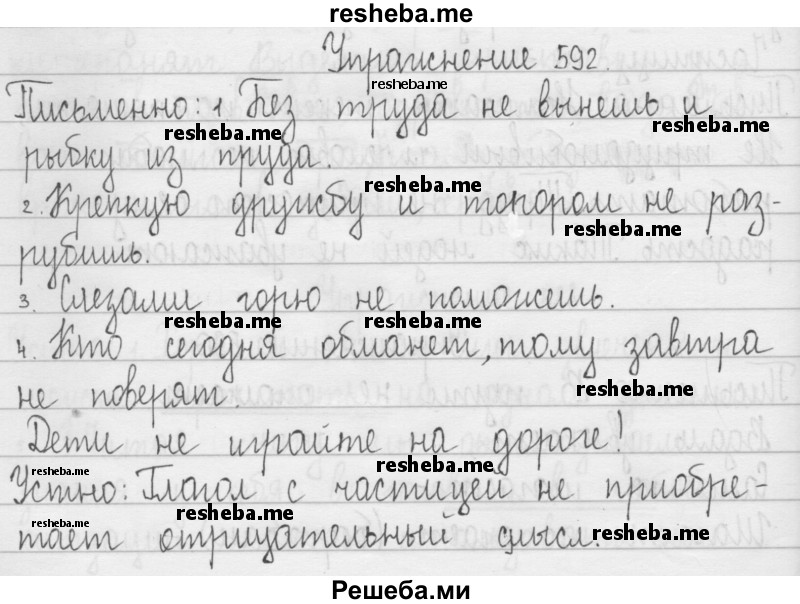 resheba.me
Упражнение 592
resheba.me
Письменно: 1. Без труда не вынешь и
resheba.me resheba.me
рыбку из пруда.
resheba.me
2. Крепкую дружбу и топором не раз-
resheba.me
рубишь.
3. Слезами горю не поможешь.
resheba.me resheba.me
4. Кто сегодня обманет, тому завтра
resheba.me
не поверят.
Дети не играйте на дороге!
resheba.me resheba.me
Устно: Глагол с частицей не приобре-
resheba.me resheba.me resheba.me
тает отрицательный смысл.
Решеба.ми